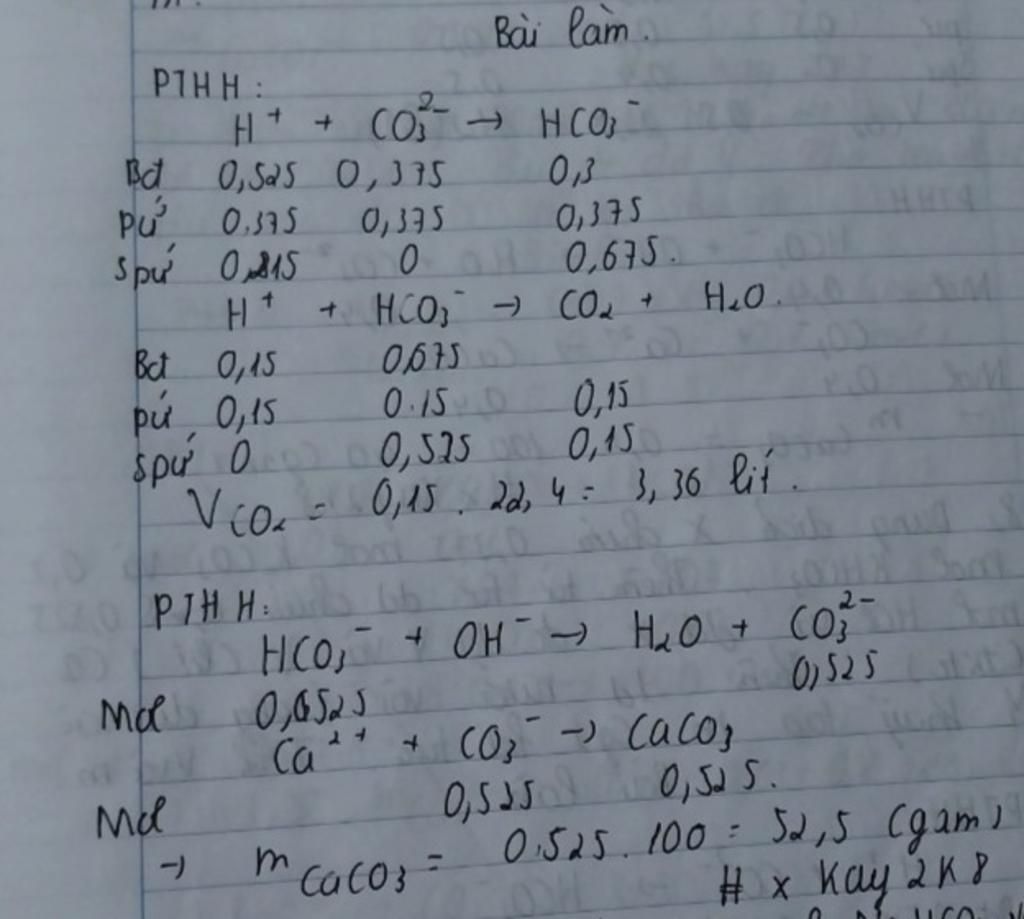 Bài làm.
PTHH:
H⁺ + CO₃²⁻ → HCO₃⁻
Bđ 0,525 0,375 0,3
pứ 0.375 0,375 0,375
spứ 0 0,675.
H⁺ + HCO₃⁻ → CO₂ + H₂O.
Bđ 0,15 0,675
pứ 0,15 0.15 0,15
spứ 0 0,525 0,15
V CO₂ = 0,15 . 22,4 = 3,36 lít.
PTHH:
HCO₃⁻ + OH⁻ → H₂O + CO₃²⁻
0,525
Mol
Ca²⁺ + CO₃⁻ → CaCO₃
Mol 0,525 0,525.
→ m CaCO₃ = 0.525 . 100 = 52,5 (gam)
# x Kay 2K8